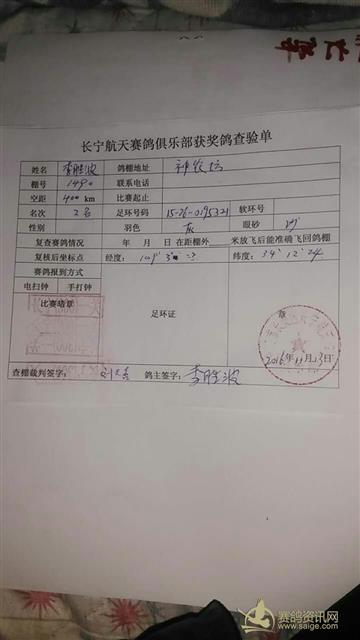 长宁航天赛鸽俱乐部获奖鸽查验单
姓名 李胜波 鸽棚地址 神农坛
棚号 1490 联系电话
空距 400 km 比赛起止
名次 2名 足环号码 15-26-0195321 软环号
性别 羽色 灰 眼砂
复查赛鸽情况 年 月 日在距棚外 米放飞后能准确飞回鸽棚
复核后坐标点 经度: 纬度: 34° 12' 24
赛鸽报到方式
电扫钟 手打钟
比赛暗章
足环证
章
2016年11月13日
查棚裁判签字: 鸽主签字: 李胜波
赛鸽资讯网
www.saige.com